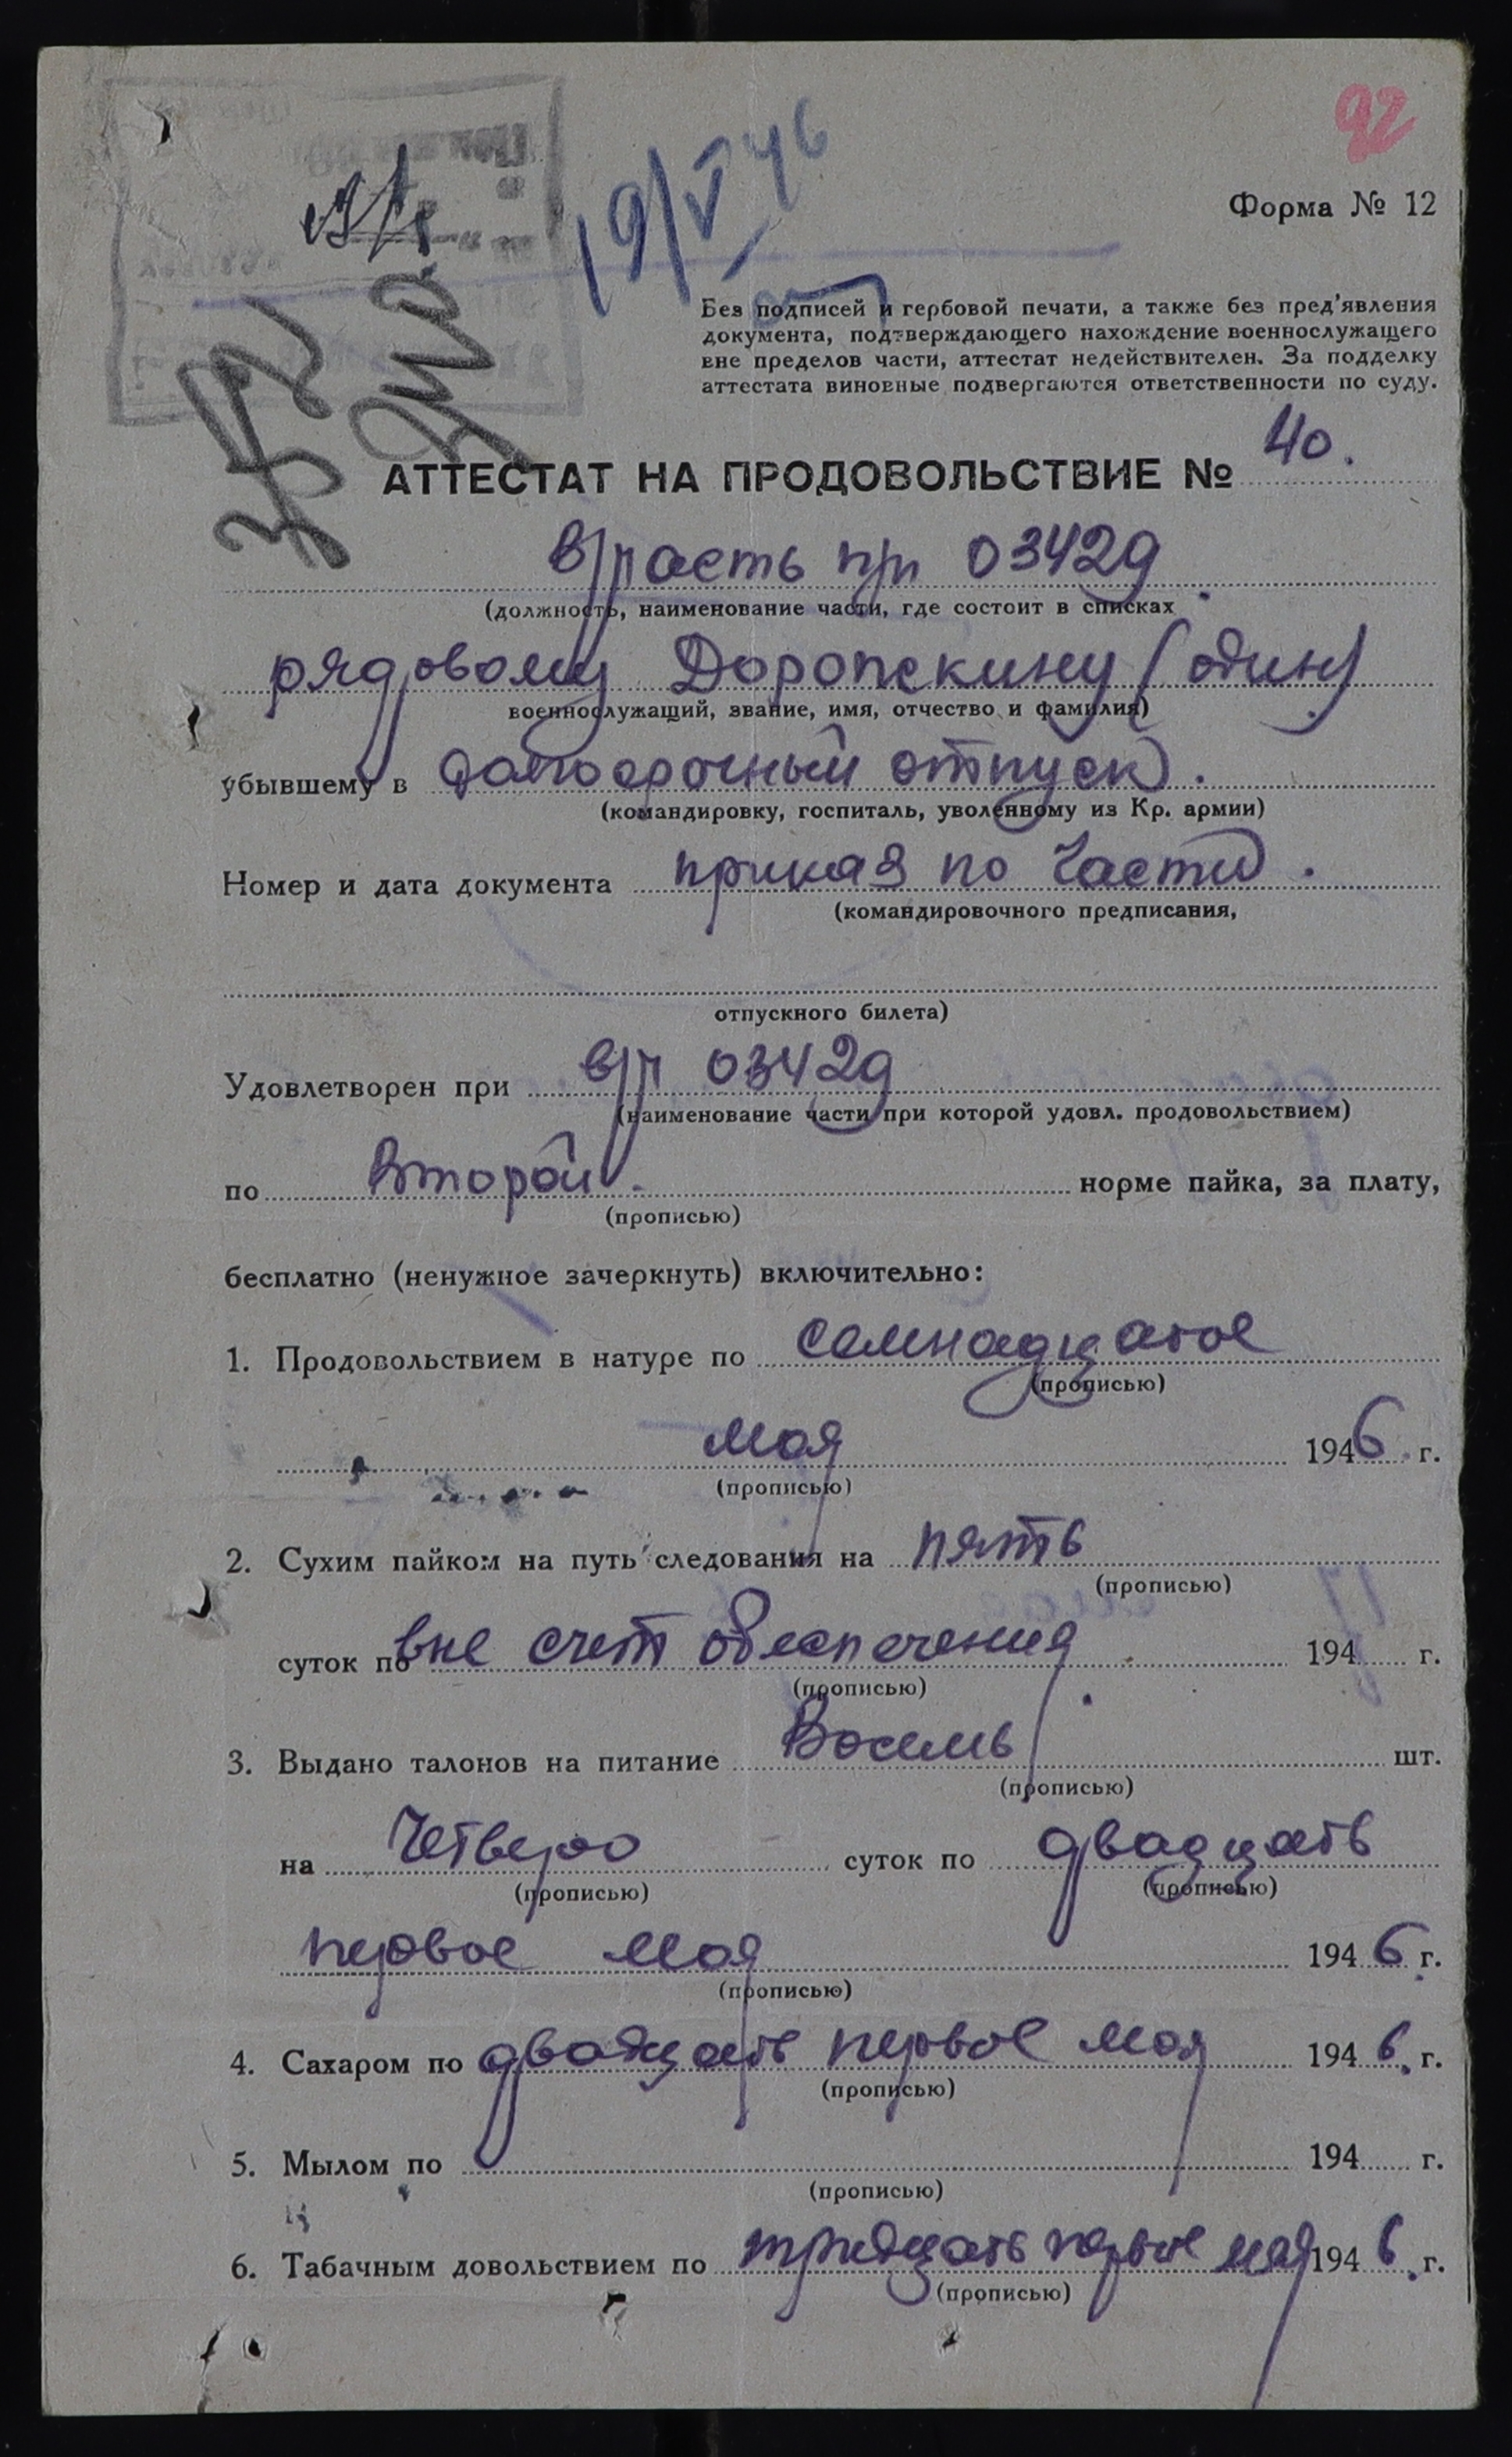 92
19/V 46
Форма № 12
Без подписей и гербовой печати, а также без пред'явления
документа, подтверждающего нахождение военнослужащего
вне пределов части, аттестат недействителен. За подделку
аттестата виновные подвергаются ответственности по суду.
АТТЕСТАТ НА ПРОДОВОЛЬСТВИЕ № 40.
в/часть пп 03429
(должность, наименование части, где состоит в списках
рядовому Доропскину (один)
военнослужащий, звание, имя, отчество и фамилия)
убывшему в долгосрочный отпуск.
(командировку, госпиталь, уволенному из Кр. армии)
Номер и дата документа приказ по части.
(командировочного предписания,
отпускного билета)
Удовлетворен при в/ч 03429
(наименование части при которой удовл. продовольствием)
по второй. норме пайка, за плату,
(прописью)
бесплатно (ненужное зачеркнуть) включительно:
1. Продовольствием в натуре по семнадцатое
(прописью)
мая 1946 г.
(прописью)
2. Сухим пайком на путь следования на пять
(прописью)
суток по вне счет обеспечения 194 г.
(прописью)
3. Выдано талонов на питание Восемь шт.
(прописью)
на Четверо суток по двадцать
(прописью) (прописью)
первое мая 1946 г.
(прописью)
4. Сахаром по двадцать первое мая 1946. г.
(прописью)
5. Мылом по 194 г.
(прописью)
6. Табачным довольствием по тридцать первое мая 1946. г.
(прописью)